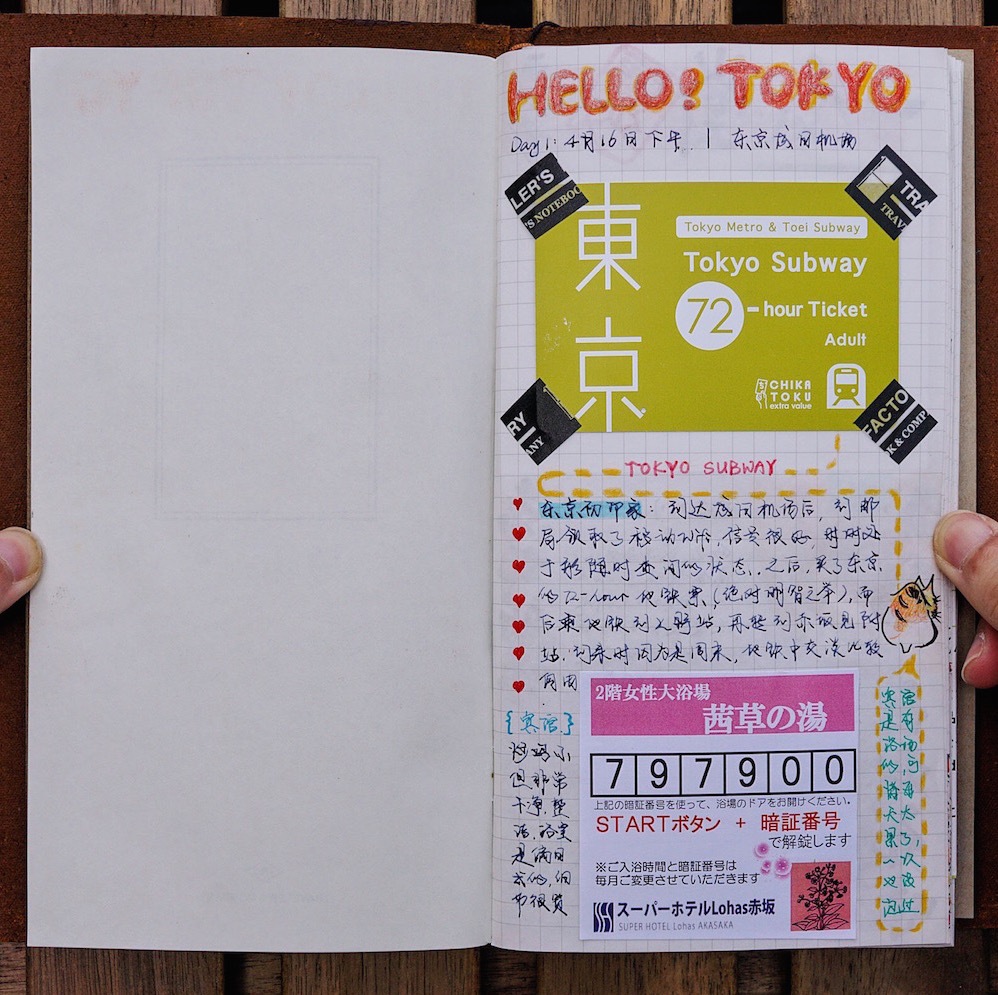 HELLO! TOKYO
Day 1: 4月16日下午. | 东京成田机场
LER'S
'S NOTEBOO
TRA
TRAV
東京
Tokyo Metro & Toei Subway
Tokyo Subway
72-hour Ticket
Adult
CHIKA
TOKU
extra value
RY
ANY
FACTO
K & COMP
TOKYO SUBWAY
东京初印象: 到达成田机场后, 到邮
局领取了移动wifi, 信号很好, 时时处
于形随时查阅的状态. 之后, 买了东京
的72-hour地铁票(绝对明智之举), 而
后乘地铁到上野站, 再转到赤坂见附
站. 到来时因为是周末, 地铁中交谈比较
{宾馆}
但非常
干净, 整
洁. 浴室
是满日
式的, 细
节很赞
2階女性大浴場
茜草の湯
797900
上記の暗証番号を使って、浴場のドアをお開けください。
STARTボタン + 暗証番号
で解錠します
※ご入浴時間と暗証番号は
毎月ご変更させていただきます
スーパーホテルLohas赤坂
SUPER HOTEL Lohas AKASAKA
宾馆
是有
汤池
的, 可
惜每
天太
累了,
一次
也没
泡过